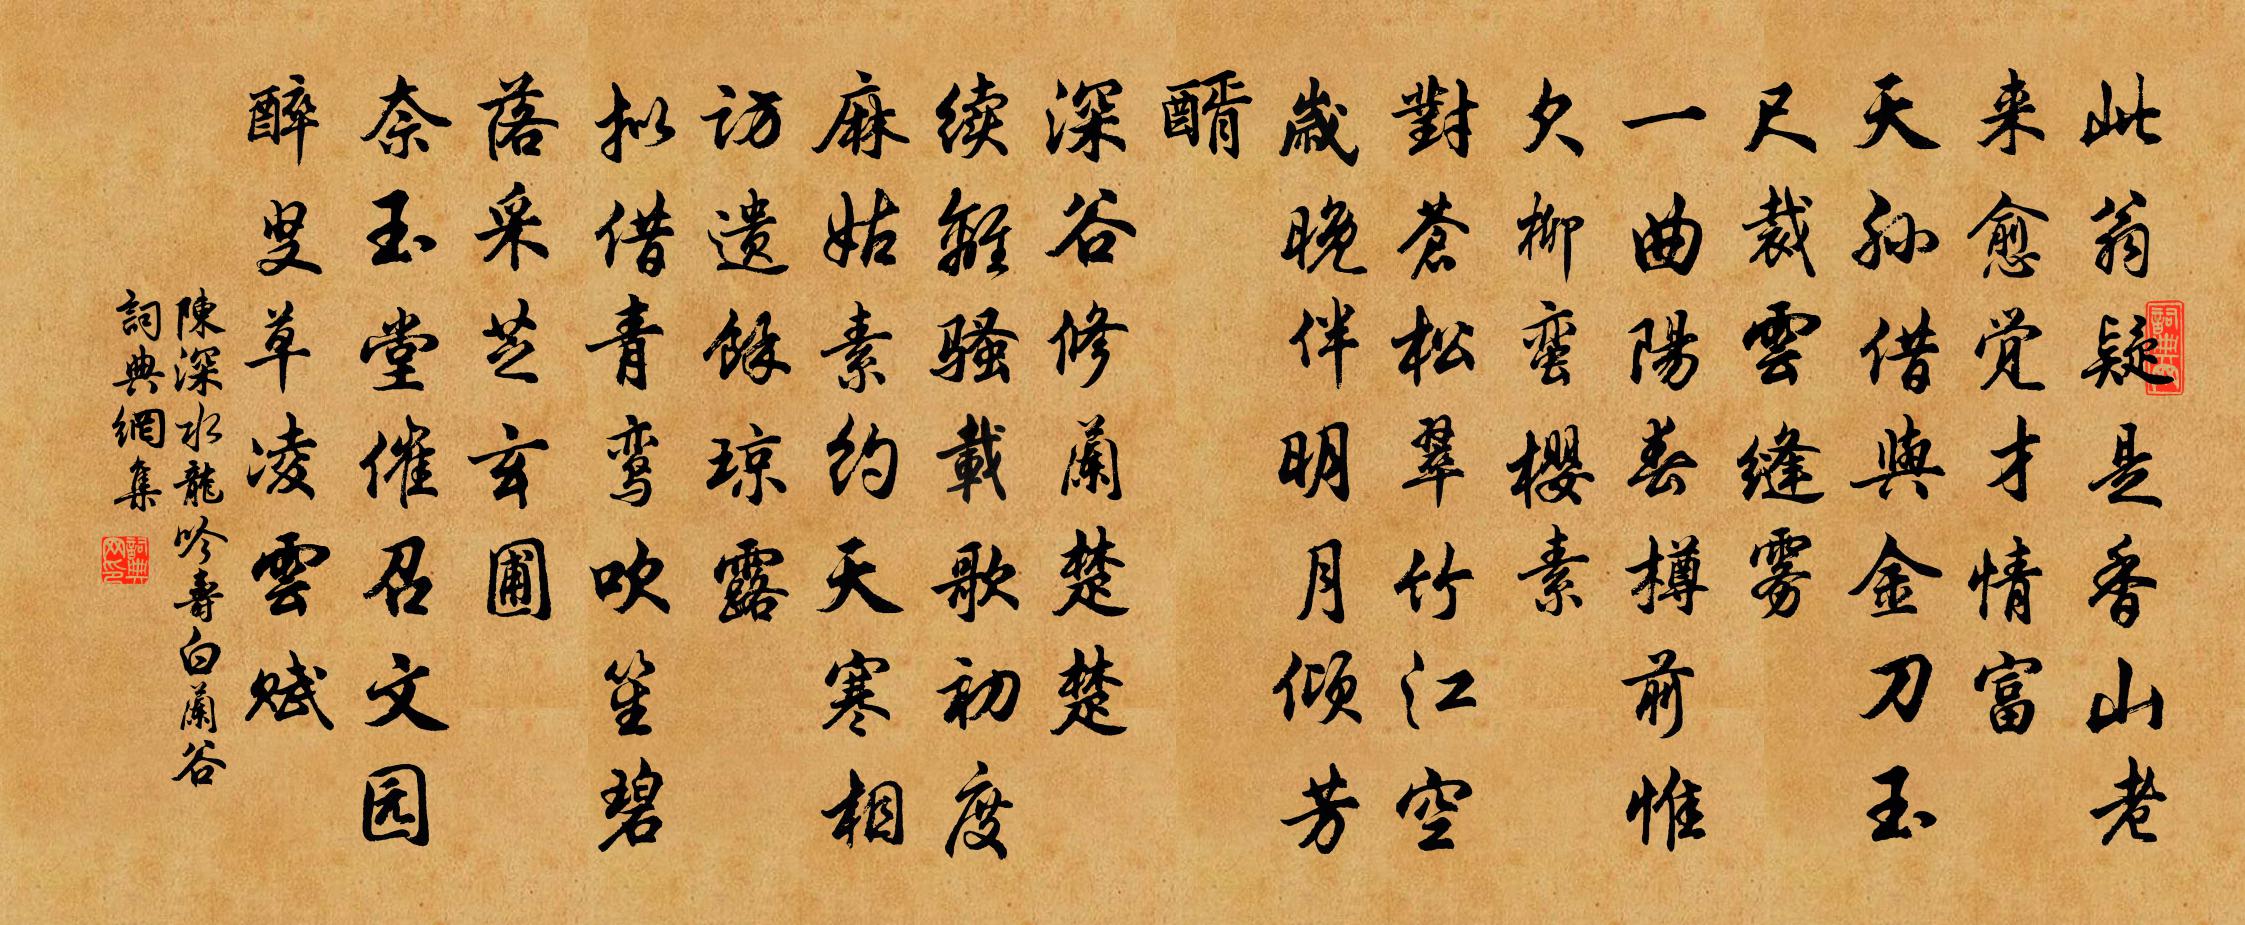 此翁疑是香山老
来愈觉才情富
天孙借與金刀玉
尺裁雲縫雾
一曲陽春樽前惟
欠柳蛮櫻素
對蒼松翠竹江空
歲晚伴明月傾芳
醑
深谷修蘭楚楚
续離骚載歌初度
麻姑素约天寒相
访遗餘琼露
拟借青鸾吹笙碧
落采芝玄圃
奈玉堂催召文园
醉叟草凌雲赋
陳深水龍吟壽白蘭谷
詞典網集